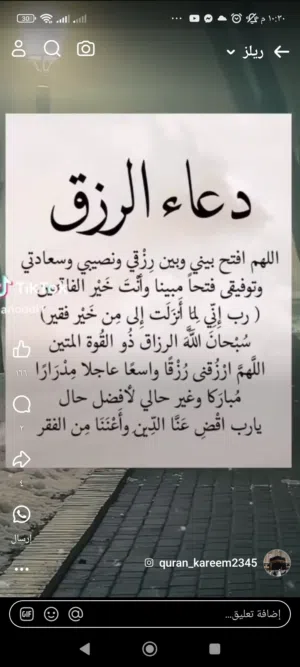 ١٠:٣٠ م
30
ريلز
دعاء الرزق
اللهم افتح بيني وبين رِزْقِي ونصيبي وسعادتي
وتوفيقى فتحاً مبينا وأَنْتَ خَيْر الفاتحين
( رب إِنِّي لِما أَنزَلْت إِلى مِن خَيْر فقير)
سُبْحانَ اللَّه الرزاق ذُو القُوة المتين
اللَّهمّ ارْزُقنى رُزْقًا واسعًا عاجلا مِدْرَارًا
مُبارَكا وغير حالي لأفضل حال
يارب اقْضِ عَنَّا الدِّين وأَغْنَنَا مِن الفقر
TikTok
١٦١
٢
٤
إرسال
quran_kareem2345
إضافة تعليق...
GIF